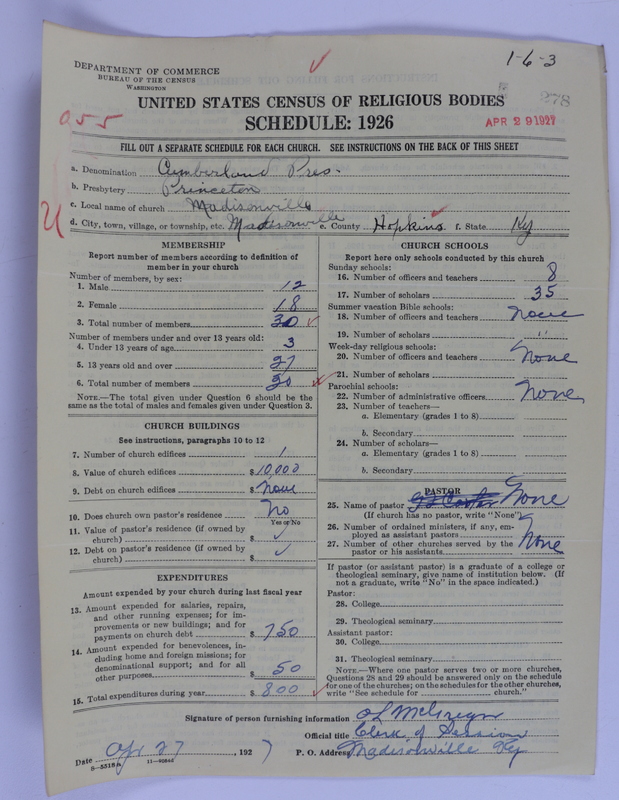 1-6-3
DEPARTMENT OF COMMERCE
BUREAU OF THE CENSUS
WASHINGTON
278
UNITED STATES CENSUS OF RELIGIOUS BODIES
a55
SCHEDULE: 1926
APR 29 1927
FILL OUT A SEPARATE SCHEDULE FOR EACH CHURCH. SEE INSTRUCTIONS ON THE BACK OF THIS SHEET
a. Denomination Cumberland Pres.
b. Presbytery Princeton
c. Local name of church Madisonville
d. City, town, village, or township, etc. Madisonville e. County Hopkins f. State Ky
MEMBERSHIP
Report number of members according to definition of
member in your church
Number of members, by sex:
1. Male 12
2. Female 18
3. Total number of members 30
Number of members under and over 13 years old:
4. Under 13 years of age 3
5. 13 years old and over 27
6. Total number of members 30
NOTE.—The total given under Question 6 should be the
same as the total of males and females given under Question 3.
CHURCH BUILDINGS
See instructions, paragraphs 10 to 12
7. Number of church edifices 1
8. Value of church edifices $ 10,000
9. Debt on church edifices $ None
10. Does church own pastor's residence No
Yes or No
11. Value of pastor's residence (if owned by
church) $ ✓
12. Debt on pastor's residence (if owned by
church) $ ✓
EXPENDITURES
Amount expended by your church during last fiscal year
13. Amount expended for salaries, repairs,
and other running expenses; for im-
provements or new buildings; and for
payments on church debt $ 750
14. Amount expended for benevolences, in-
cluding home and foreign missions; for
denominational support; and for all
other purposes $ 50
15. Total expenditures during year $ 800
CHURCH SCHOOLS
Report here only schools conducted by this church
Sunday schools:
16. Number of officers and teachers 8
17. Number of scholars 35
Summer vacation Bible schools:
18. Number of officers and teachers None
19. Number of scholars "
Week-day religious schools:
20. Number of officers and teachers None
21. Number of scholars
Parochial schools:
22. Number of administrative officers None
23. Number of teachers—
a. Elementary (grades 1 to 8)
b. Secondary
24. Number of scholars—
a. Elementary (grades 1 to 8)
b. Secondary
PASTOR
25. Name of pastor None
(If church has no pastor, write "None")
26. Number of ordained ministers, if any, em-
ployed as assistant pastors
27. Number of other churches served by the
pastor or his assistants None
If pastor (or assistant pastor) is a graduate of a college or
theological seminary, give name of institution below. (If
not a graduate, write "No" in the space indicated.)
Pastor:
28. College
29. Theological seminary
Assistant pastor:
30. College
31. Theological seminary
NOTE.—Where one pastor serves two or more churches,
Questions 28 and 29 should be answered only on the schedule
for one of the churches; on the schedules for the other churches,
write "See schedule for church."
Signature of person furnishing information O L McGregor
Official title Clerk of Session
Date Apr 27, 1927 P. O. Address Madisonville Ky
8-5518A 11-60842